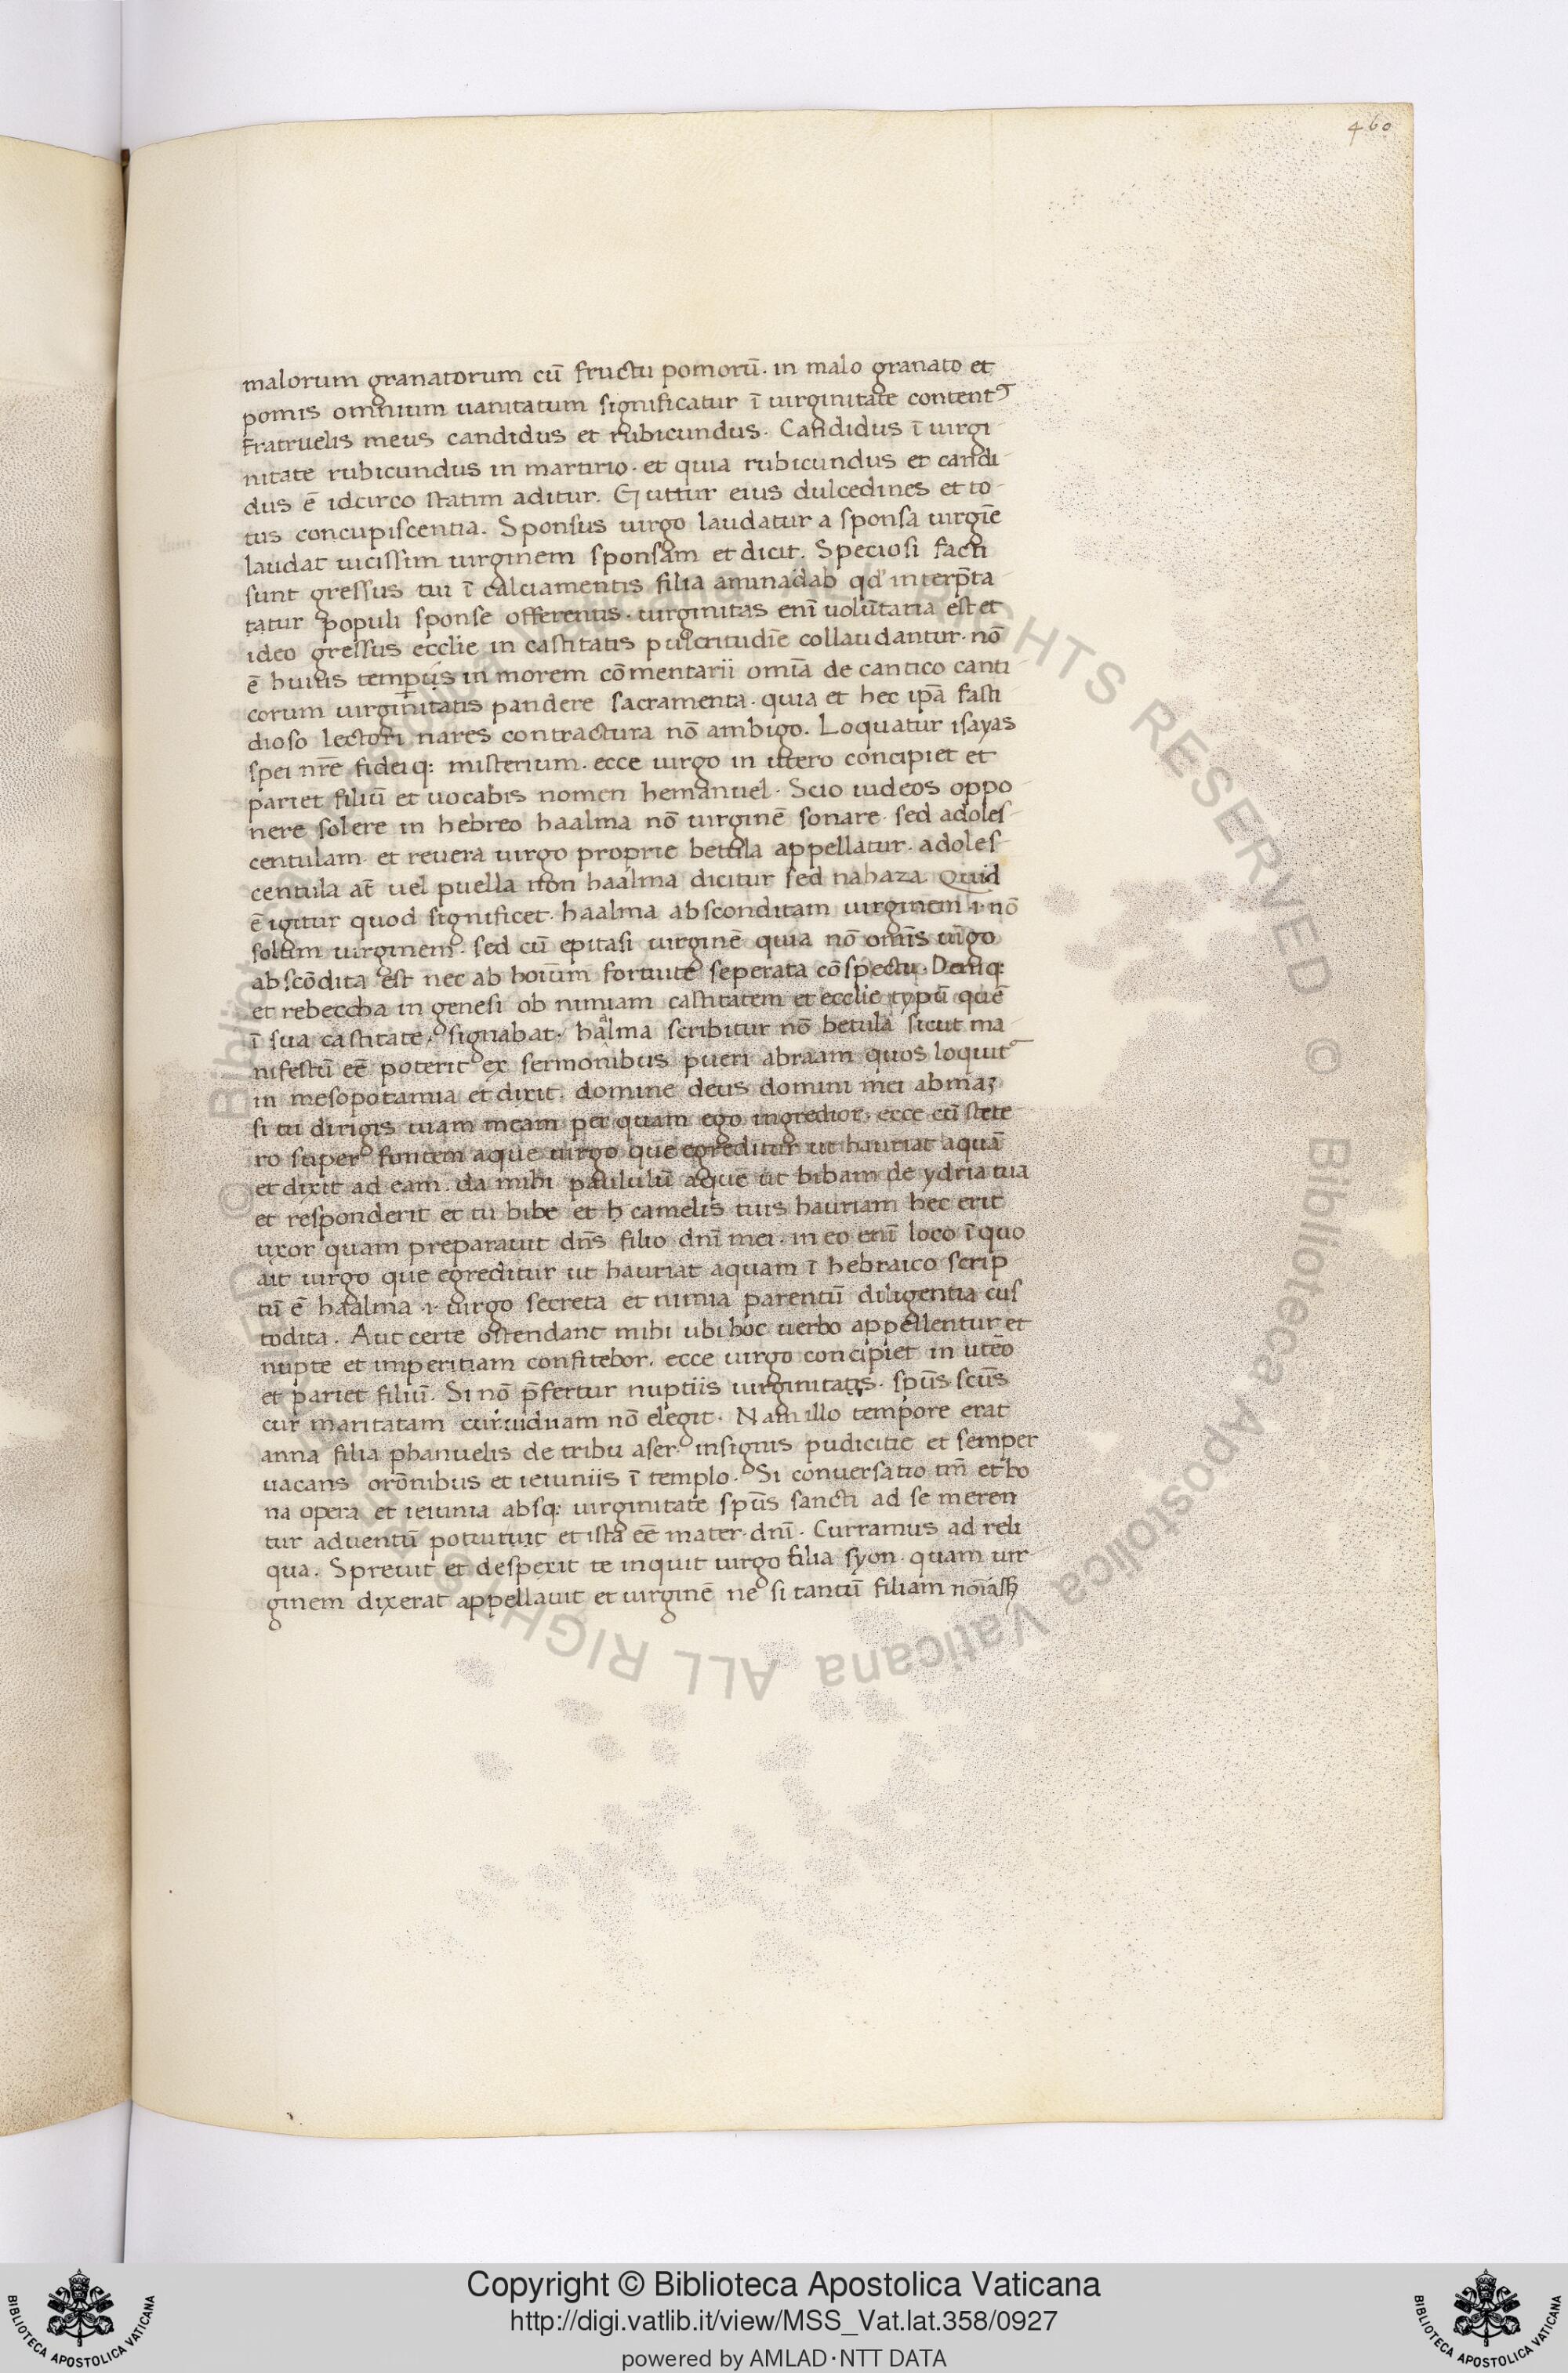 460
malorum granatorum cū fructu pomorū. in malo granato et
pomis omnium uanitatum significatur ī uirginitate content᷒
fratruelis meus candidus et rubicundus. Candidus ī uirgi
nitate rubicundus in martirio. et quia rubicundus et candi
dus ē idcirco statim aditur. Guttur eius dulcedines et to
tus concupiscentia. Sponsus uirgo laudatur a sponsa uirgīe
laudat uicissim uirginem sponsam et dicit. Speciosi facti
sunt gressus tui ī calciamentis filia aminadab qd' interp̄ta
tatur populi sponse offerentis. uirginitas enī uolūtaria est et
ideo gressus ecclie in castitatis pulcritudīe collaudantur. nō
ē huius temp̱is in morem cōmentarii omīa de cantico canti
corum uirginitatis pandere sacramenta. quia et hec ipā fasti
dioso lectori nares contractura nō ambigo. Loquatur isayas
spei nr̄e fideiq: misterium. ecce uirgo in utero concipiet et
pariet filiū et uocabis nomen hemanuel. Scio iudeos oppo
nere solere in hebreo haalma nō uirginē sonare. sed adoles
centulam. et reuera uirgo proprie betula appellatur. adoles
centula at̄ uel puella non haalma dicitur sed nahaza. Quid
ē igitur quod significet. haalma absconditam uirginem .i. nō
solum uirginem. sed cū epitasi uirginē quia nō omīs uīgo
abscōdita est nec ab hoīum fortuite seperata cōspectu. Deniq:
et rebeccha in genesi ob nimiam castitatem et ecclie typū quē
ī sua castitate. signabat. haalma scribitur nō betula sicut ma
nifestū eē poterit ex sermonibus pueri abraam quos loquit᷒
in mesopotamia et dixit. domine deus domini mei
si tu dirigis uiam meam per quam ego ingredior. ecce cū stete
ro super fontem aque uirgo que egreditur ut hauriat aquā
et dixit ad eam. da mihi paululū aque ut bibam de ydria tua
et responderit et tu bibe et camelis tuis hauriam hec erit
uxor quam preparauit dn̄s filio dn̄i mei. in eo enī loco ī quo
ait uirgo que egreditur ut hauriat aquam ī hebraico scrip
tū ē haalma .i. uirgo secreta et nimia parentū diligentia cus
todita. Aut certe ostendant mihi ubi hoc uerbo appellentur et
nupte et imperitiam confitebor. ecce uirgo concipiet in utēo
et pariet filiū. Si nō p̄fertur nuptiis uirginitatis. spūs scūs
cur maritatam cur uiduam nō elegit. Nam illo tempore erat
anna filia phanuelis de tribu aser. insignis pudicitie et semper
uacans orōnibus et ieiuniis ī templo. Si conuersatio tm̄ et bo
na opera et ieiunia absq: uirginitate spūs sancti ad se meren
tur aduentū potuit et ista eē mater dn̄i. Curramus ad reli
qua. Spreuit et despexit te inquit uirgo filia syon. quam uir
ginem dixerat appellauit et uirginē ne si tantū filiam
Copyright © Biblioteca Apostolica Vaticana
http://digi.vatlib.it/view/MSS_Vat.lat.358/0927
powered by AMLAD·NTT DATA
BIBLIOTECA APOSTOLICA VATICANA
BIBLIOTECA APOSTOLICA VATICANA
© Biblioteca Apostolica Vaticana ALL RIGHTS RESERVED